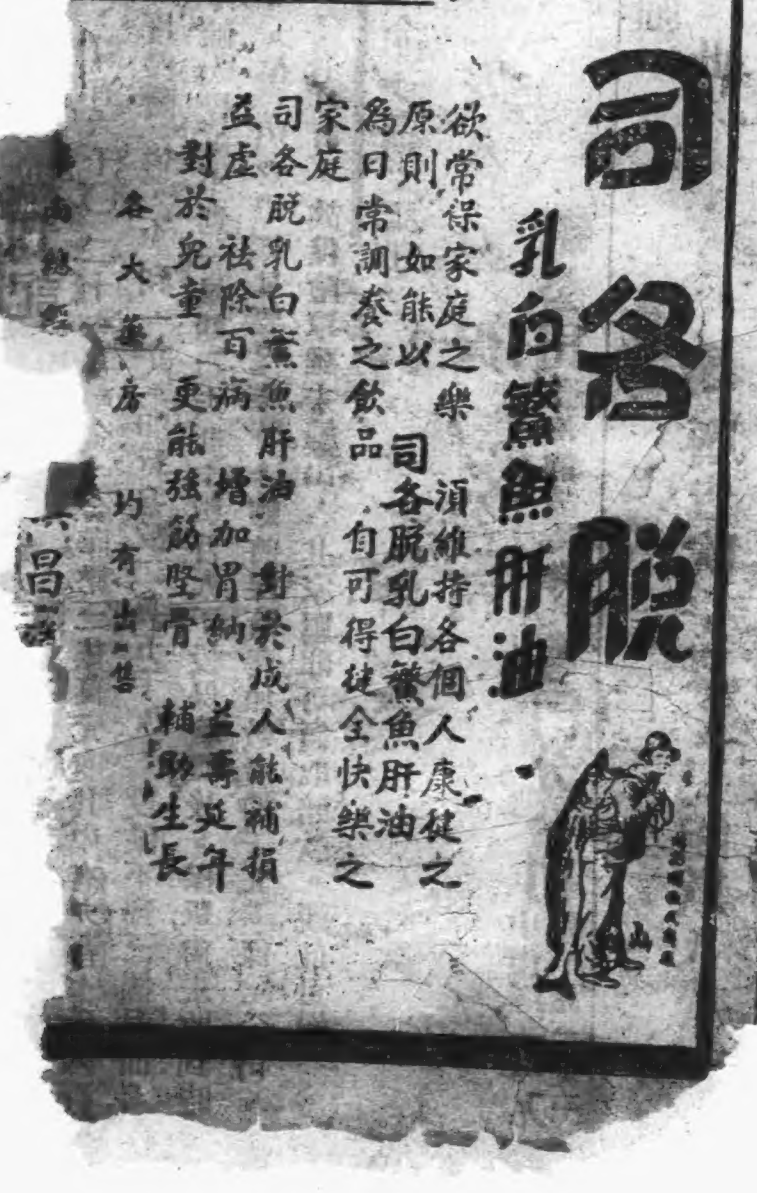 司各脫
乳白鱉魚肝油
欲常保家庭之樂 須維持各個人康健之
原則 如能以 司各脫乳白鱉魚肝油
為日常調養之飲品 自可得健全快樂之
家庭
司各脫乳白鱉魚肝油 對於成人能補損
益虛 祛除百病 增加胃納 益壽延年
對於兒童 更能強筋堅骨 輔助生長
各大藥房 均有出售
南總
昌